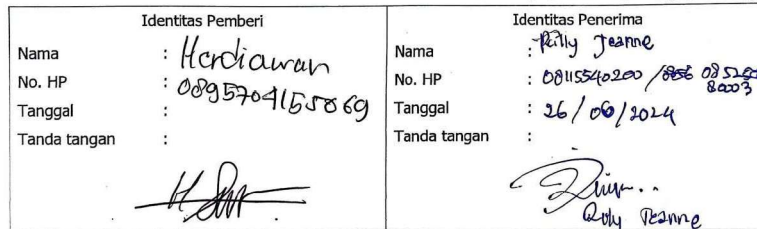 Identitas Pemberi
Nama : Herdiawan
No. HP : 0895704155069
Tanggal :
Tanda tangan :
Identitas Penerima
Nama : Rully Jeanne
No. HP : 08115540200 /
Tanggal : 26/06/2024
Tanda tangan :
Jeanne